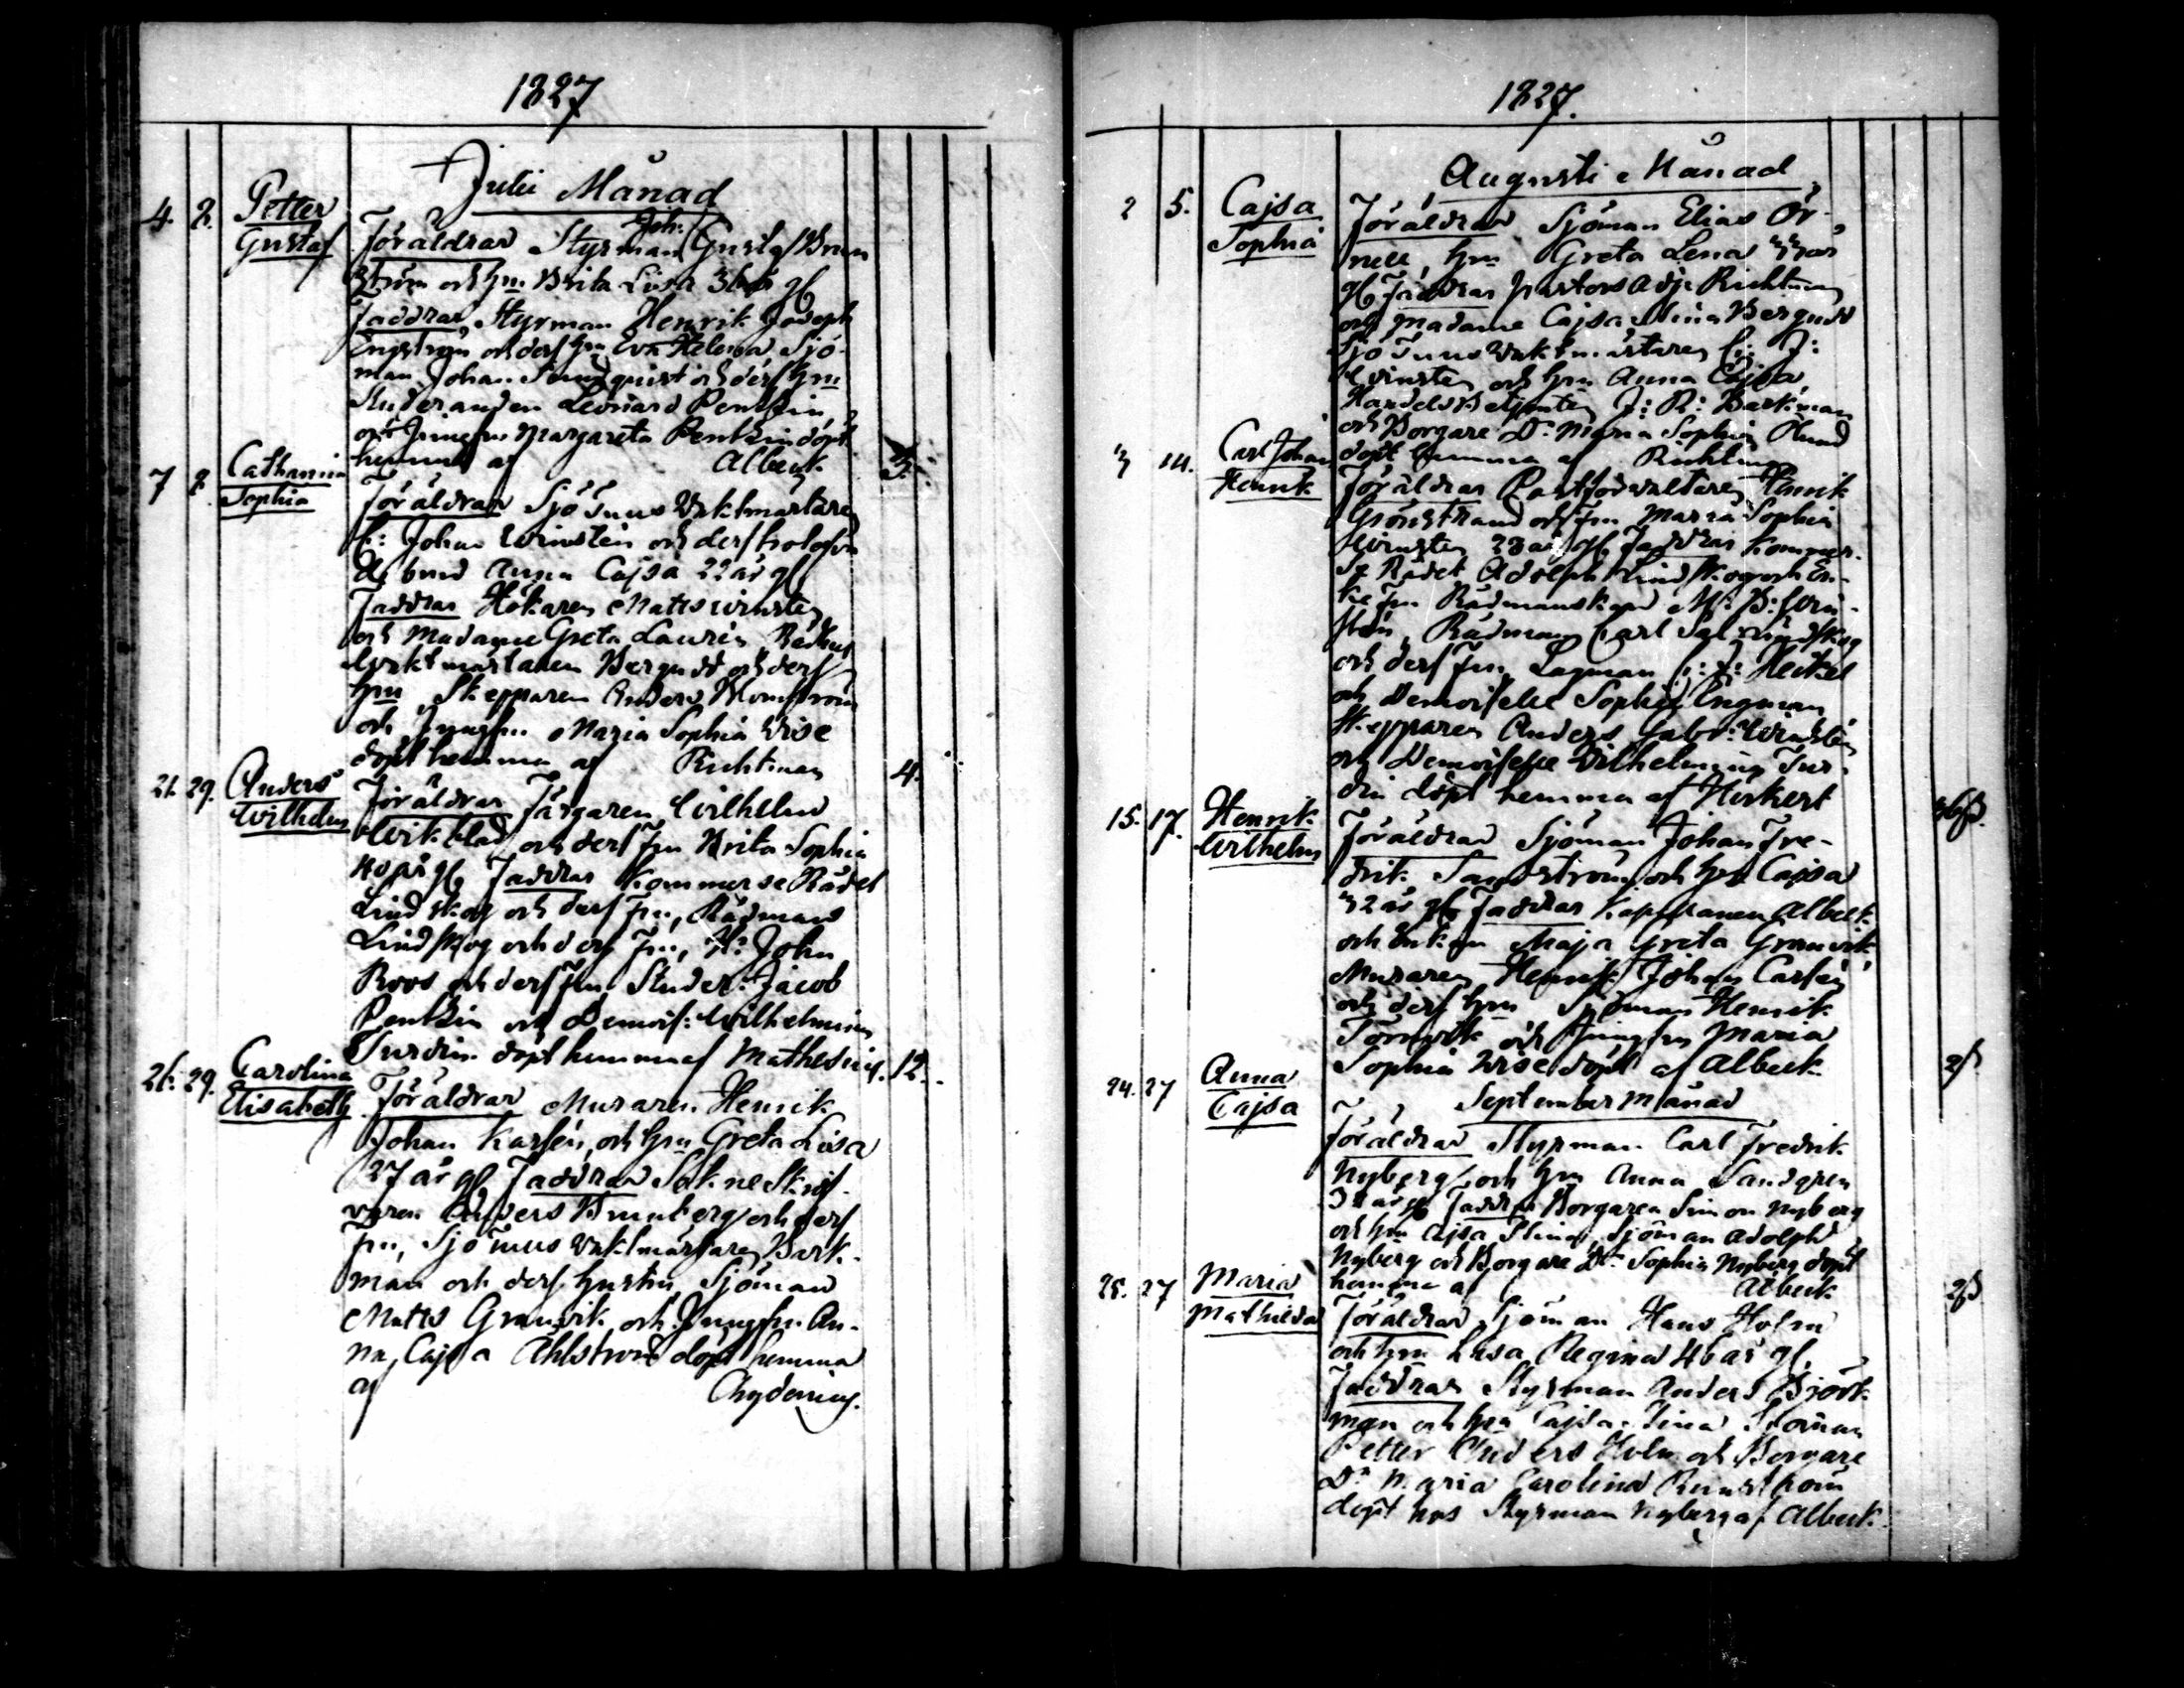 1827
Julii Månad
4. 8. Petter Gustaf
Föräldrar Styrman Joh. Gustaf Brun
ström och hu Brita Lisa 36 år gl
Faddrar, Styrman Henrik Joseph
Engström och dess hu Eva Helena, Sjö-
man Johan Sundquist och dess hu
Studeranden Leonard Pentzin,
och Jungfru Margareta Pentzin döpt
hemma af Albeck
7 8 Catharina Sophia
Föräldrar Sjö Tuus Vaktmästaren
C: Johan Winstén och dess trolofva
de brud Anna Cajsa 22 år gl
Faddrar Hökaren Matts Winstén
och Madame Greta Laurin Rådhus
Vaktmästaren Bergudd och dess
hu Skepparen Anders Blomström
och Jungfru Maria Sophia Wise
döpt hemma af Richtman
21. 29. Anders Wilhelm 4.
Föräldrar Färgaren Wilhelm
Wikblad och dess Fru Brita Sophia
40 år gl Faddrar Kommerse Rådet
Lindskog och dess Fru, Rådman
Lindskog och dess Fru, Hr John
Roos och dess Fru Studer: Jacob
Pentzin och Demois: Wilhelmina
Turdin döpt hemma af Mathesius. 12.
26. 29. Carolina Elisabeth
Föräldrar Muraren Henrik
Johan Karlén, och hu Greta Lisa
27 år gl Faddrar Sokne Skrif-
varen Anders Brunberg och dess
Fru, Sjö Tuus Vaktmästaren Bark-
man och dess hustru, Sjöman
Matts Granvik och Jungfru An-
na Cajsa Åhlström döpt hemma
af Chydenius.
1827.
Augusti Månad
2 5. Cajsa Sophia
Föräldrar Sjöman Elias Ör-
nell, hu Greta Lena år
gl Faddrar Pastors Adj: Richtman
och Madame Cajsa Stina Bergudd
Sjö Tuus Vaktmästaren C: J:
Winstén och hu Anna Cajsa,
Handels Betjenten J: R: Barkman
och Borgare Dr Maria Sophia
döpt hemma af Richtman
3 14. Carl Johan Henrik
Föräldrar Postförvaltaren Henrik
Grönstrand och Fru Maria Sophia
Winstén 23 år gl Faddrar Kommer-
se Rådet Adolph Lindskog och En-
ke Fru Rådmanskan M: B: Win-
stén, Rådman Carl Lindskog
och dess Fru, Lagman C: J: Heikel
och Demoiselle Sophia Engman
Skepparen Anders Gabr: Winstén
och Demoiselle Wilhelmina Tur-
din döpt hemma af Herkert
15. 17. Henrik Wilhelm
Föräldrar Sjöman Johan Fre-
drik Sandström och hu Cajsa
32 år gl Faddrar Kapplanen Albeck
och Enkan Maja Greta Granvik
Muraren Henrik Johan Carlén
och dess hu Sjöman Henrik
Törnvik och Jungfru Maria
Sophia Wise döpt af Albeck
24. 27 Anna Cajsa
September Månad
Föräldrar Styrman Carl Fredrik
Nyberg och hu Anna Sandgren
år gl Faddrar Borgaren Simon Nyberg
och hu Cajsa Stina, Sjöman Adolph
Nyberg och Borgare Dr Sophia Nyberg döpt
hemma af Albeck
25. 27 Maria Mathilda
Föräldrar Sjöman Hans Holm
och hu Lisa Regina 46 år gl
Faddrar Styrman Anders Björk
man och hu Cajsa Stina Sjöman
Petter Anders Holm och Borgare
Dr Maria Carolina Renström
döpt hos Styrman Nyberg af Albeck.